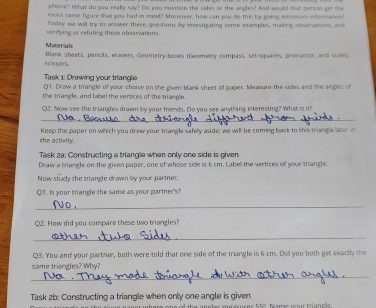 phone? What do you really say? Do you mention the sides or the angles? And would that person get the
exact same figure that you had in mind? Moreover, how can you do this by giving minimum information?
Today we will try to answer these questions by investigating some examples, making observations, and
verifying or refuting these observations.
Materials
Blank sheets, pencils, erasers, Geometry-boxes (Geometry compass, set-squares, protractor, and scale),
scissors.
Task 1: Drawing your triangle
Q1. Draw a triangle of your choice on the given blank sheet of paper. Measure the sides and the angles of
the triangle, and label the vertices of the triangle.
Q2. Now see the triangles drawn by your friends. Do you see anything interesting? What is it?
No. Because the triangle different from frinds.
Keep the paper on which you drew your triangle safely aside; we will be coming back to this triangle later in
the activity.
Task 2a: Constructing a triangle when only one side is given
Draw a triangle on the given paper, one of whose side is 6 cm. Label the vertices of your triangle.
Now study the triangle drawn by your partner.
Q1. Is your triangle the same as your partner's?
No,
Q2. How did you compare these two triangles?
other two sides
Q3. You and your partner, both were told that one side of the triangle is 6 cm. Did you both get exactly the
same triangles? Why?
No. They made triangle with other angles.
Task 2b: Constructing a triangle when only one angle is given
of the angles measures 55°. Name your triangle.